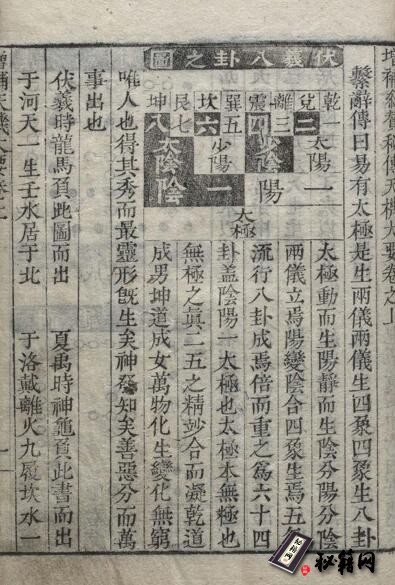 增補參贊秘傳天機大要卷之上
繫辭傳曰易有太極是生兩儀兩儀生四象四象生八卦
伏羲八卦之圖
乾兌離震巽坎艮坤
二三四五六七八
太陽
少陰
少陽
太陰
陽
陰
太極
太極動而生陽靜而生陰分陽分陰
兩儀立焉陽變陰合四象生焉五
流行八卦成焉倍而重之爲六十四
卦盖陰陽一太極也太極本無極也
無極之眞二五之精妙合而凝乾道
成男坤道成女萬物化生變化無窮
唯人也得其秀而最靈形旣生矣神發知矣善惡分而萬
事出也
伏羲時龍馬負此圖而出 夏禹時神龜負此書而出
于河天一生壬水居于北 于洛戴離火九履坎水一
秘籍网